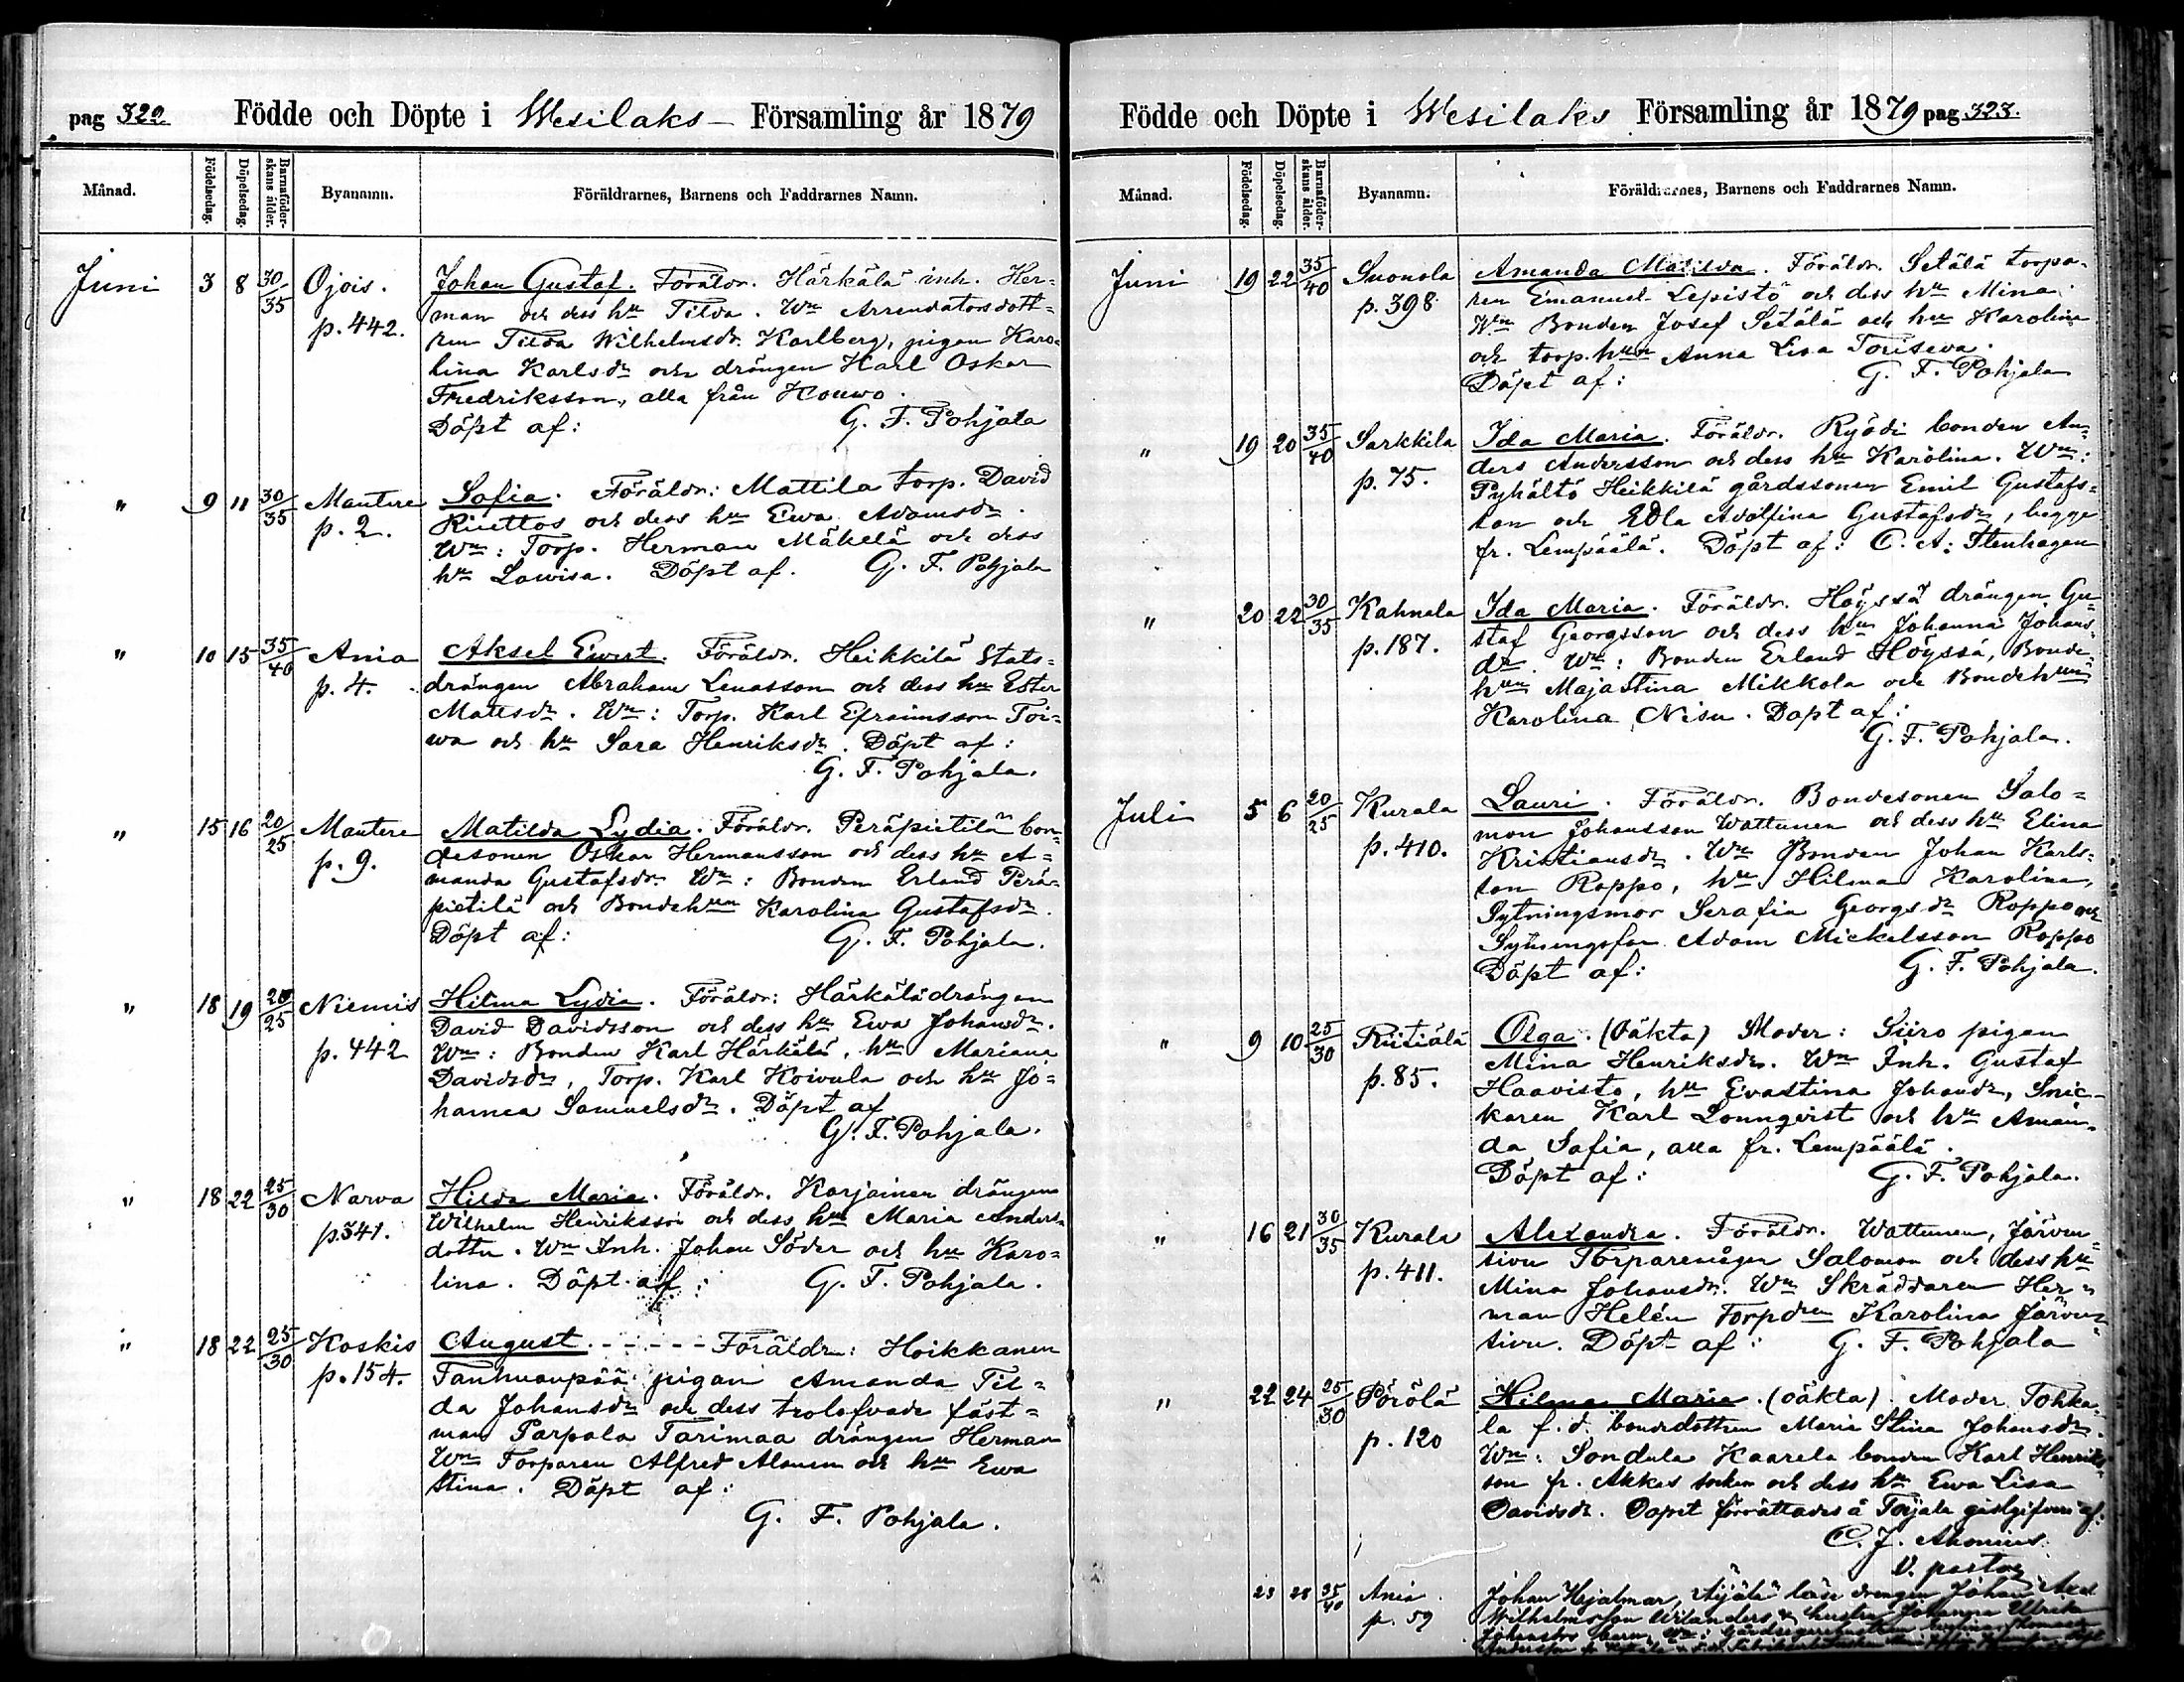 pag 322.
Födde och Döpte i Wesilaks Församling år 1879
Månad.
Födelsedag.
Döpelsedag.
Barnaföder-
skans ålder.
Byanamn.
Föräldrarnes, Barnens och Faddrarnes Namn.
Juni 3 8 30/35 Ojois. p. 442.
Johan Gustaf. Föräldr. Härkälä inh. Her=
man och dess hu Tilda. Wn Arrendatorsdott=
ren Tilda Wilhelmsdr Karlberg, pigan Karo=
lina Karlsdr och drängen Karl Oskar
Fredriksson, alla från Kouwo.
Döpt af: G. F. Pohjala
" 9 11 30/35 Mantere p. 2.
Sofia. Föräldr: Mattila torp. David
och dess hu Ewa Adamsdr.
Wn: Torp. Herman Mäkelä och dess
hu Lowisa. Döpt af. G. F. Pohjala
" 10 15 35/40 Ania p. 4.
Aksel Ewert. Föräldr. Heikkilä Stats=
drängen Abraham Lenasson och dess hu Ester
Mattsdr. Wn: Torp. Karl Efraimsson Toi=
wa och hu Sara Henriksdr. Döpt af:
G. F. Pohjala.
" 15 16 20/25 Mantere p. 9.
Matilda Lydia. Föräldr. Peräpietilä bon=
desonen Oskar Hermansson och dess hu A=
manda Gustafsdr. Wn: Bonden Erland Perä=
pietilä och Bondehun Karolina Gustafsdr.
Döpt af: G. F. Pohjala.
" 18 19 20/25 Niemis p. 442
Hilma Lydia. Föräldr: Härkälä drängen
David Davidsson och dess hu Ewa Johansdr.
Wn: Bonden Karl Härkälä, hu Mariana
Davidsdr, Torp. Karl Koivula och hu Jo=
hanna Samuelsdr. Döpt af
G. F. Pohjala.
" 18 22 25/30 Narva p. 341.
Hilda Maria. Föräldr. Karjainen drängen
Wilhelm Henriksson och dess hu Maria Anders=
dotter. Wn Inh. Johan Söder och hu Karo=
lina. Döpt af: G. F. Pohjala.
" 18 22 25/30 Koskis p. 154.
August. - - - - - Föräldr: Hoikkanen
Tanhuanpää pigan Amanda Til=
da Johansdr och dess trolofvade fäst=
man Parpala Tarimaa drängen Herman
Wn Torparen Alfred Alanen och hu Ewa
Stina. Döpt af:
G. F. Pohjala.
Födde och Döpte i Wesilaks Församling år 1879 pag 323.
Månad.
Födelsedag.
Döpelsedag.
Barnaföder-
skans ålder.
Byanamn.
Föräldrarnes, Barnens och Faddrarnes Namn.
Juni 19 22 35/40 Suonola p. 398
Amanda Matilda. Föräldr. Setälä torpa=
ren Emanuel Lepistö och dess hu Mina.
Wn Bonden Josef Setälä och hu Karolina
och torp.hun Anna Lisa
Döpt af: G. F. Pohjala
" 19 20 35/40 Sarkkila p. 75.
Ida Maria. Föräldr. Ryödi bonden An=
ders Andersson och dess hu Karolina. Wn:
Pyhältö Heikkilä gårdssonen Emil Gustafs=
son och Edla Adolfina Gustafsdr, begge
fr. Lempäälä. Döpt af: C. A. Stenhagen
" 20 22 30/35 Kahnala p. 187.
Ida Maria. Föräldr. Höyssä drängen Gu=
staf Georgsson och dess hu Johanna Johans=
dr. Wn: Bonden Erland Höyssä, Bonde=
hun Majastina Mikkola och Bondehun
Karolina Nisu. Döpt af:
G. F. Pohjala.
Juli 5 6 20/25 Kurala p. 410.
Lauri. Föräldr. Bondesonen Salo=
mon Johansson Wattunen och dess hu Elina
Kristiansdr. Wn Bonden Johan Karls=
son Roppo, hu Hilma Karolina,
Sytningsmor Serafia Georgsdr Roppo och
Sytningsfar Adam Mickelsson Roppo
Döpt af: G. F. Pohjala.
" 9 10 25/30 Riitiälä p. 85.
Olga. (Oäkta) Moder: Siiro pigan
Mina Henriksdr. Wn Inh. Gustaf
Haavisto, hu Evastina Johansdr, Snic=
karen Karl Lönnqvist och hu Aman=
da Sofia, alla fr. Lempäälä.
Döpt af: G. F. Pohjala.
" 16 21 30/35 Kurala p. 411.
Alexandra. Föräldr. Wattunen, Järven=
sivu Torparemågen Salomon och dess hu
Mina Johansdr. Wn Skräddaren Her=
man Helén Torpdren Karolina Järven=
sivu. Döpt af: G. F. Pohjala
" 22 24 25/30 Pörölä p. 120
Hilma Maria. (oäkta). Moder Tohka=
la f. d. bondedottren Maria Stina Johansdr.
Wn: Sondula Kaarela bonden Karl Henriks=
son fr. Akkas socken och dess hu Ewa Lisa
Davidsdr. Dopet förrättades å gästgifveri af:
C. J. Ahonius.
V. pastor
23 28 35/40 Ania p. 59
Johan Hjalmar, Äijälä drengen Johan Axel
Wilhelmsson Wilanders & hustru Johanna Ulrika
barn. Wn:
Andersson